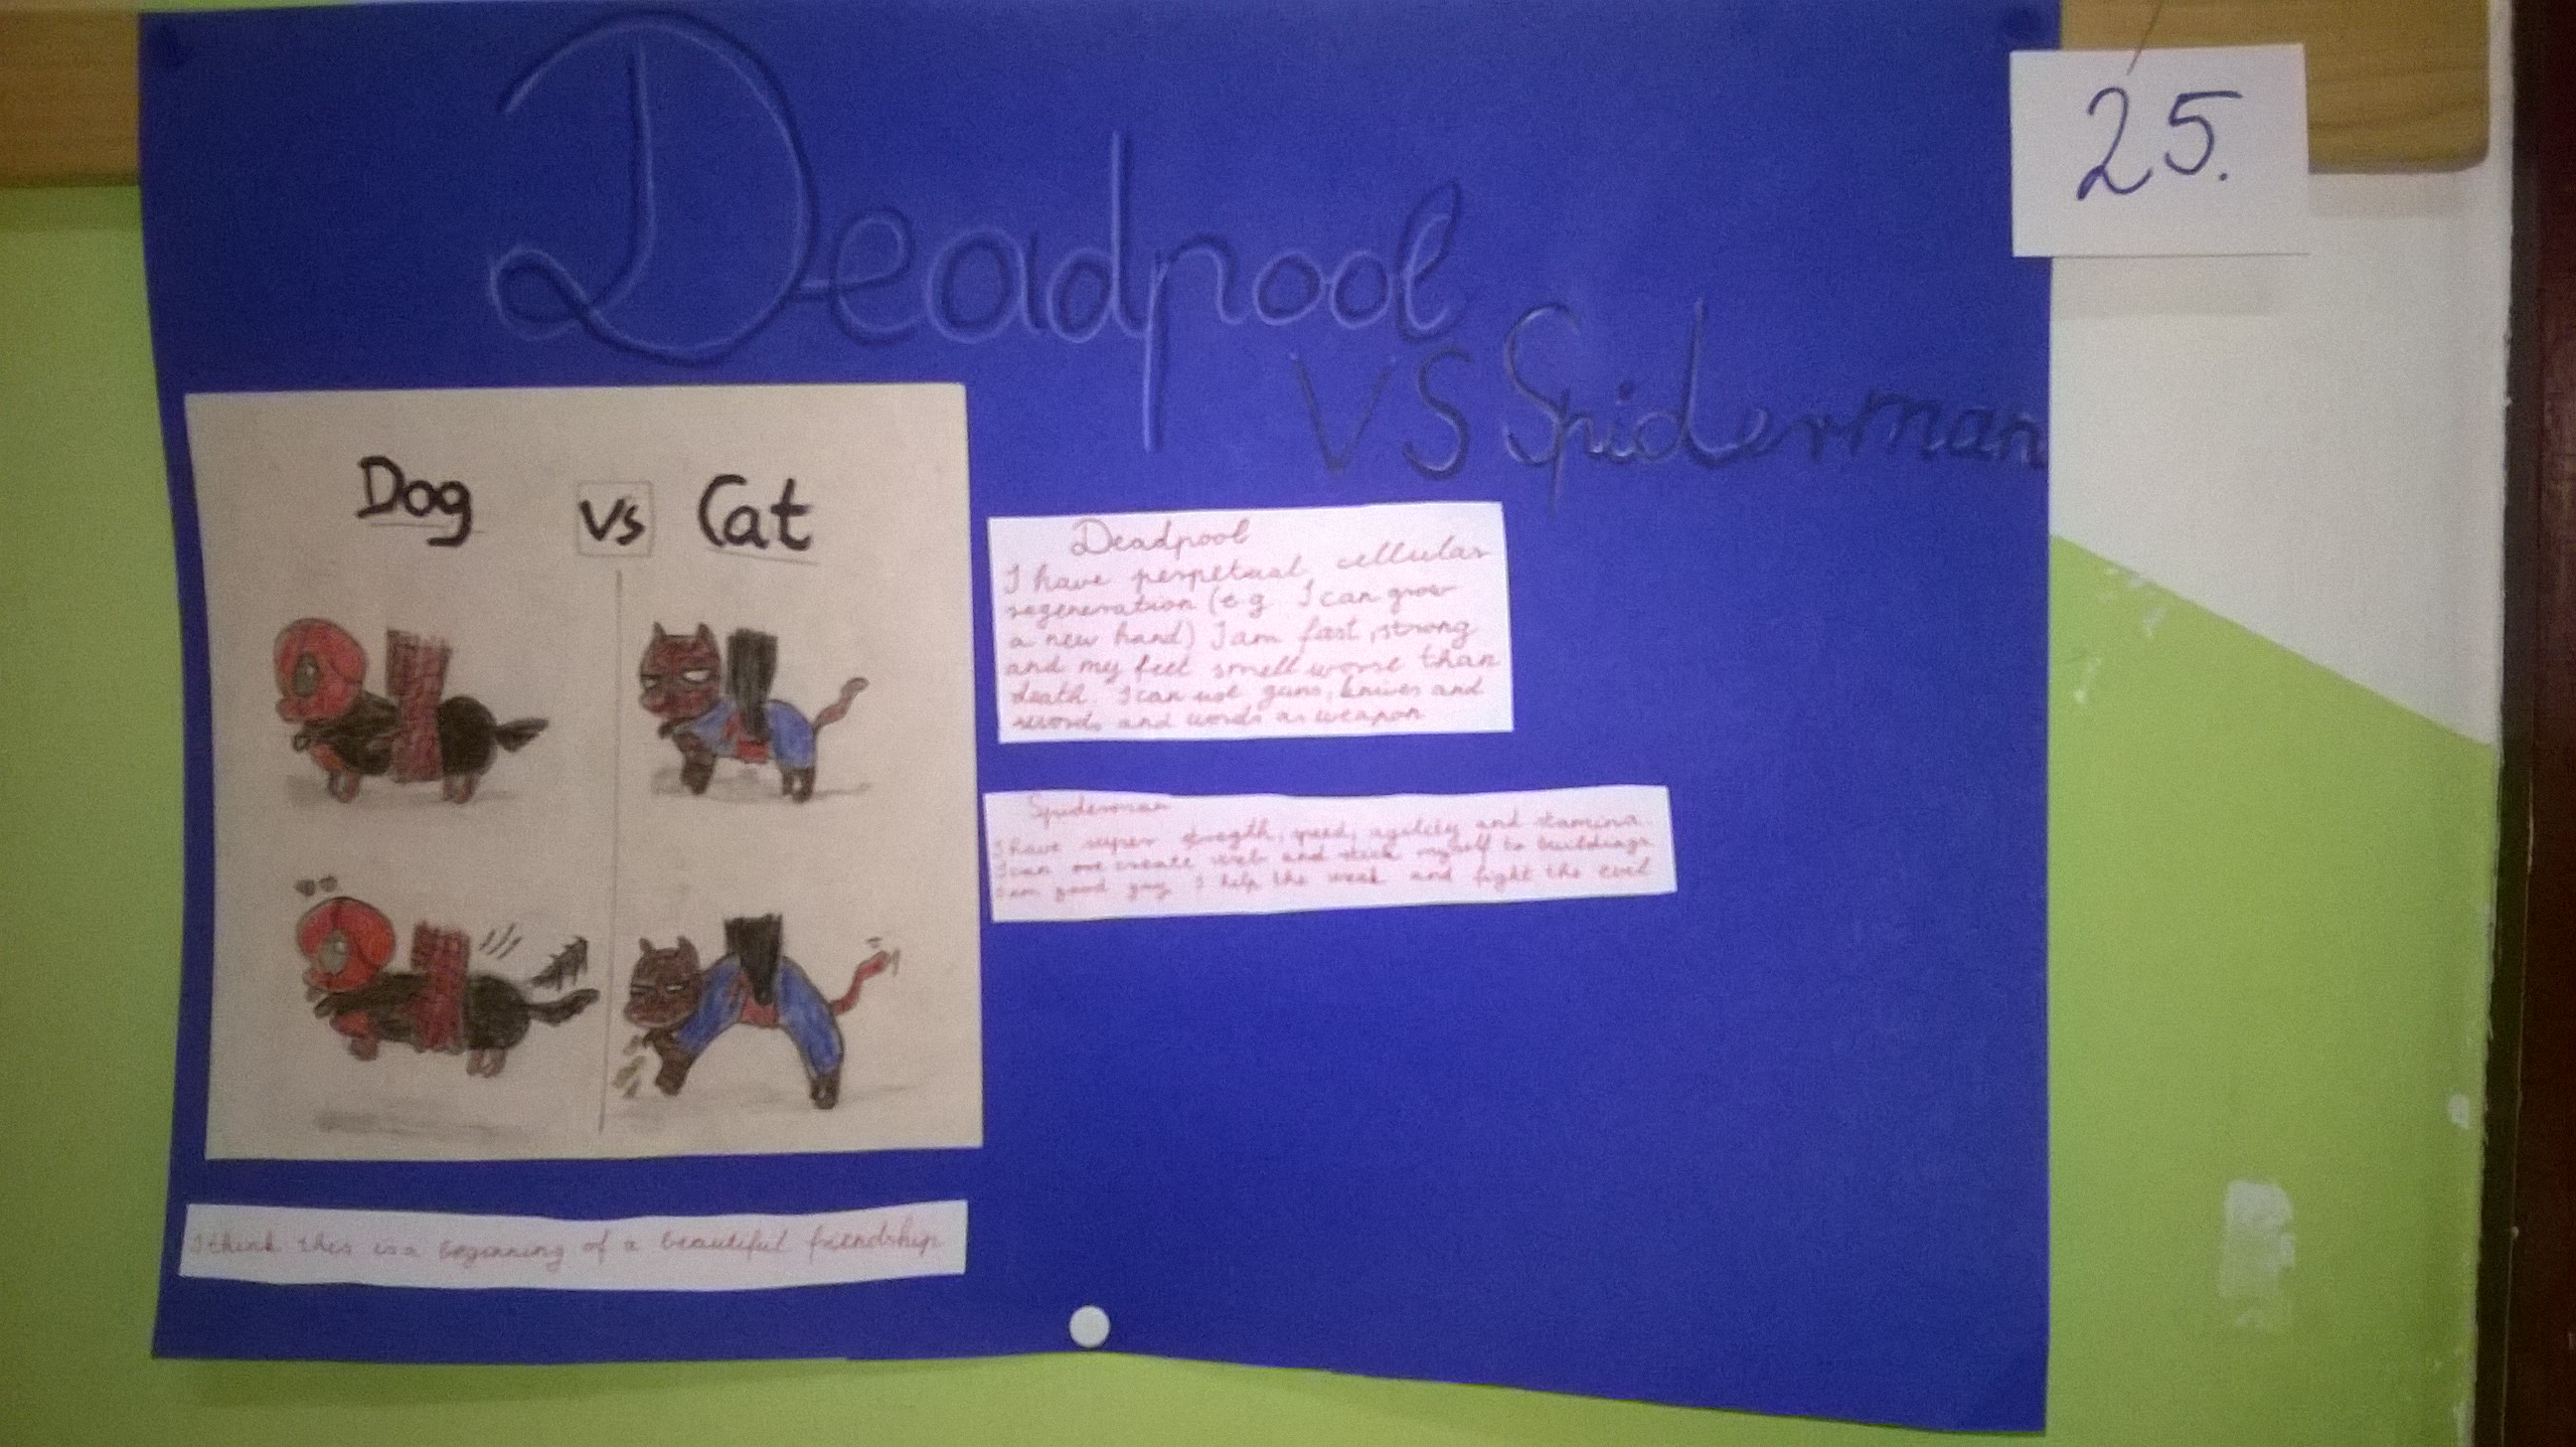 Deadpool
VS Spiderman
25.
Dog vs Cat
Deadpool
I have perpetual cellular
regeneration (e.g. I can grow
a new hand) I am fast, strong
and my feet smell worse than
death. I can use guns, knives and
swords and words as weapon
Spiderman
I have super stregth, speed, agility and stamina.
I can create web and stick myself to buildings
I am good guy I help the weak and fight the evil
I think this is a beginning of a beautiful friendship